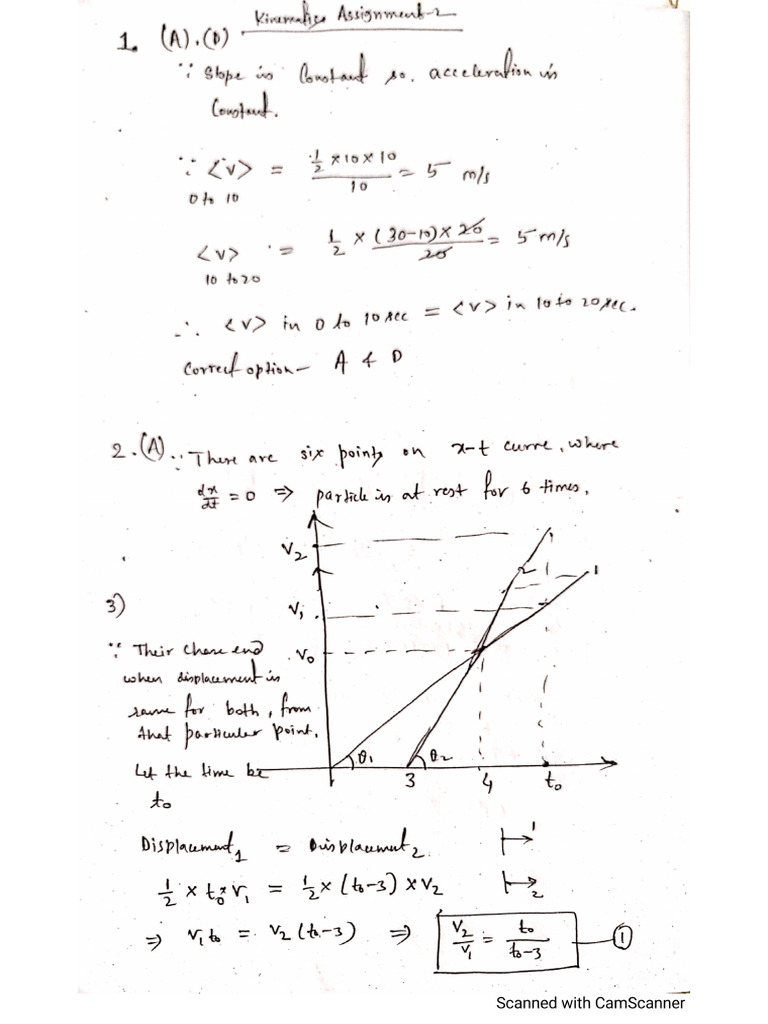 Kinematics Assignment-2
1. (A).(D)
∵ Slope is Constant so. acceleration is
Constant.
∵ <v> = (1/2 × 10 × 10)/10 = 5 m/s
0 to 10
<v> = (1/2 × (30-10) × 20)/20 = 5 m/s
10 to 20
∴ <v> in 0 to 10 sec = <v> in 10 to 20 sec.
Correct option - A & D
2. (A) ∵ There are six points on x-t curve, where
dx/dt = 0 ⇒ particle is at rest for 6 times.
V2
2 1 1
3)
V1
∵ Their chase end
V0
when displacement is
same for both, from
that particular point.
θ1 θ2
Let the time be
3 4 t0
t0
Displacement1 = Displacement2
1
1/2 × t0 × V1 = 1/2 × (t0-3) × V2
2
⇒ V1t0 = V2(t0-3) ⇒ V2/V1 = t0/(t0-3) — ①
Scanned with CamScanner